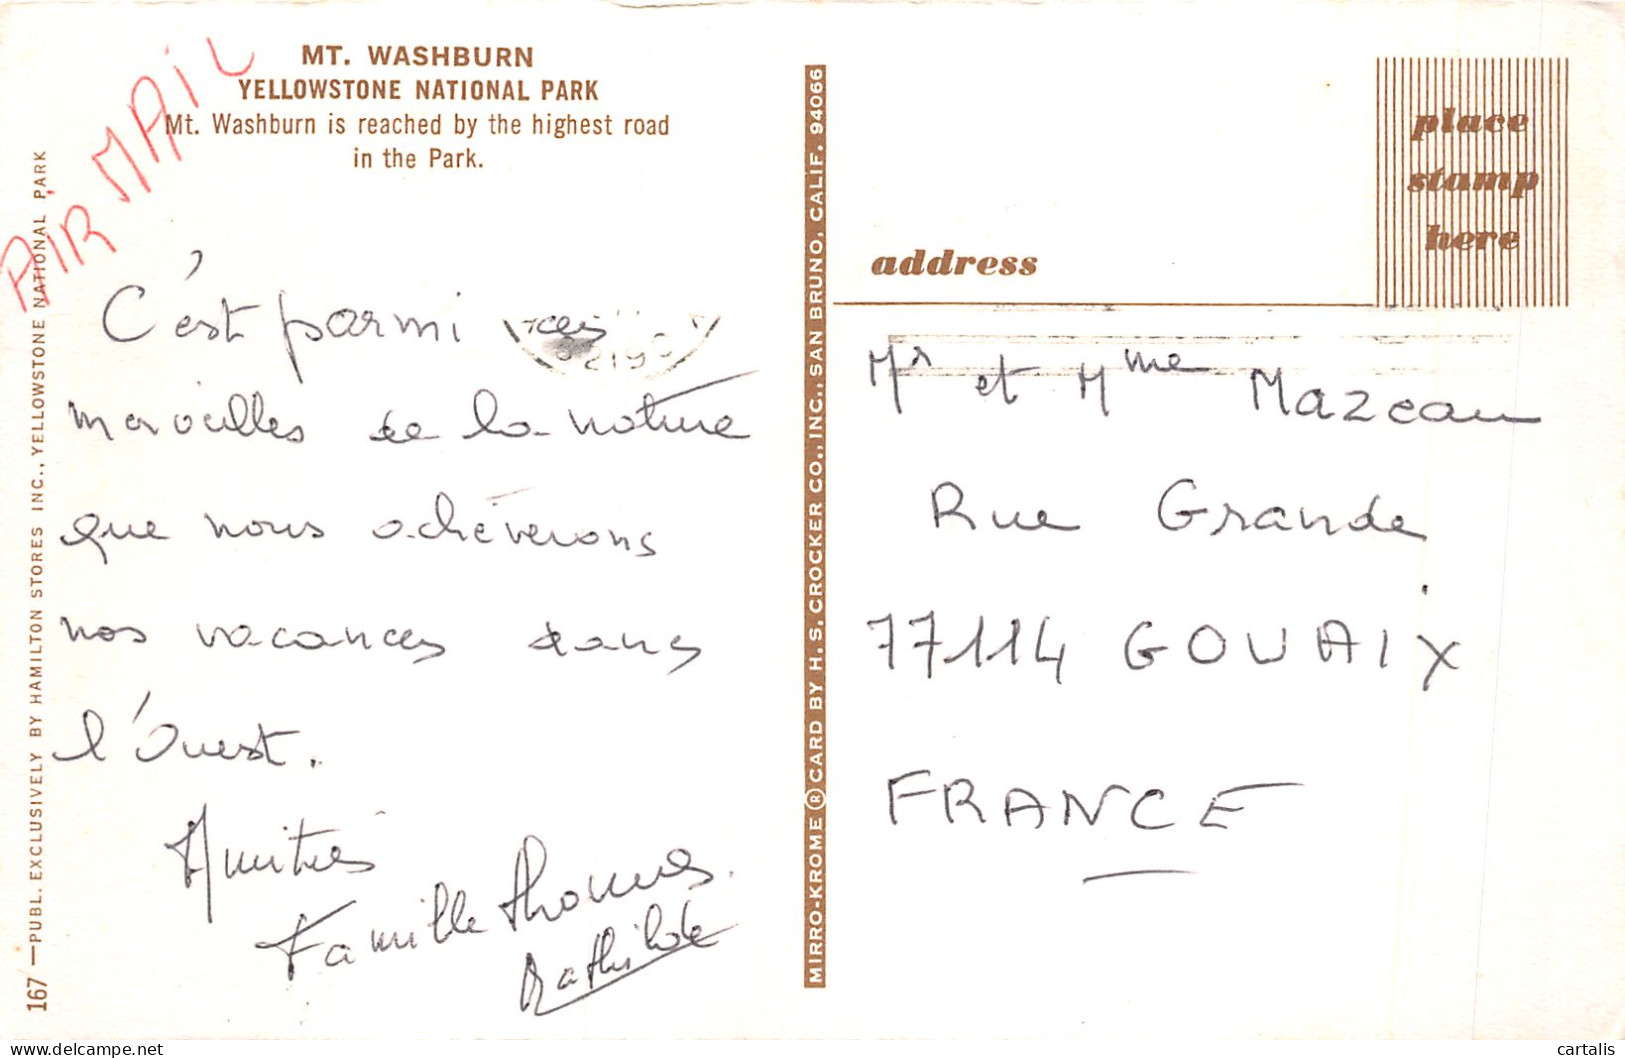 MT. WASHBURN
YELLOWSTONE NATIONAL PARK
Mt. Washburn is reached by the highest road
in the Park.
AIR MAIL
C'est parmi ces
merveilles de la nature
que nous achèverons
nos vacances dans
l'Ouest.
Amitiés
Famille Thomas.
Mathilde
167 — PUBL. EXCLUSIVELY BY HAMILTON STORES INC., YELLOWSTONE NATIONAL PARK
MIRRO-KROME ® CARD BY H. S. CROCKER CO., INC., SAN BRUNO, CALIF. 94066
place
stamp
here
address
Mr et Mme Mazeau
Rue Grande
77114 GOUAIX
FRANCE
cartalis
delcampe.net